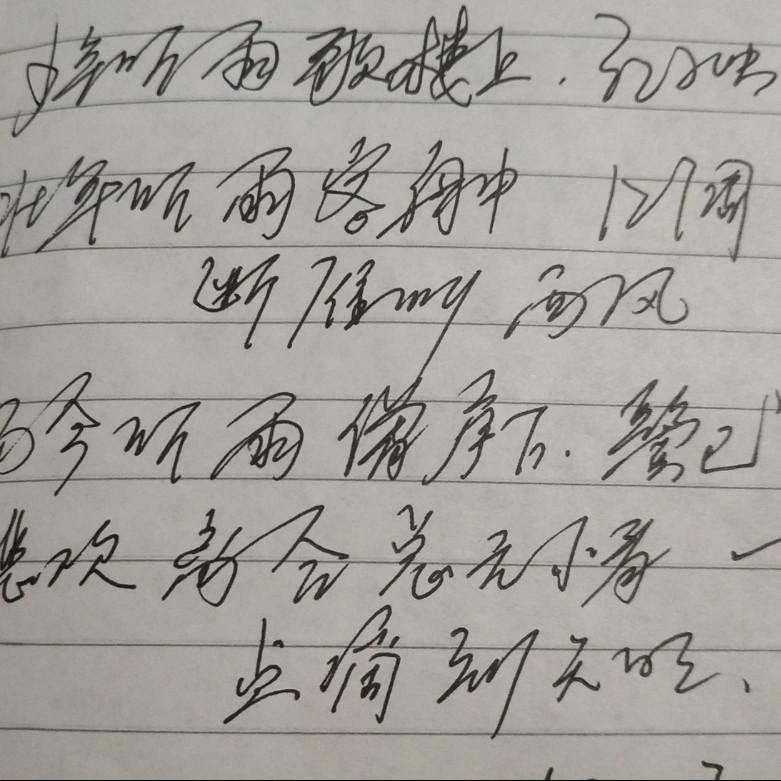 少年听雨歌楼上.红烛
壮年听雨客舟中 江阔
断雁叫西风
而今听雨僧庐下.鬓已
悲欢离合总无情 一
点滴到天明、